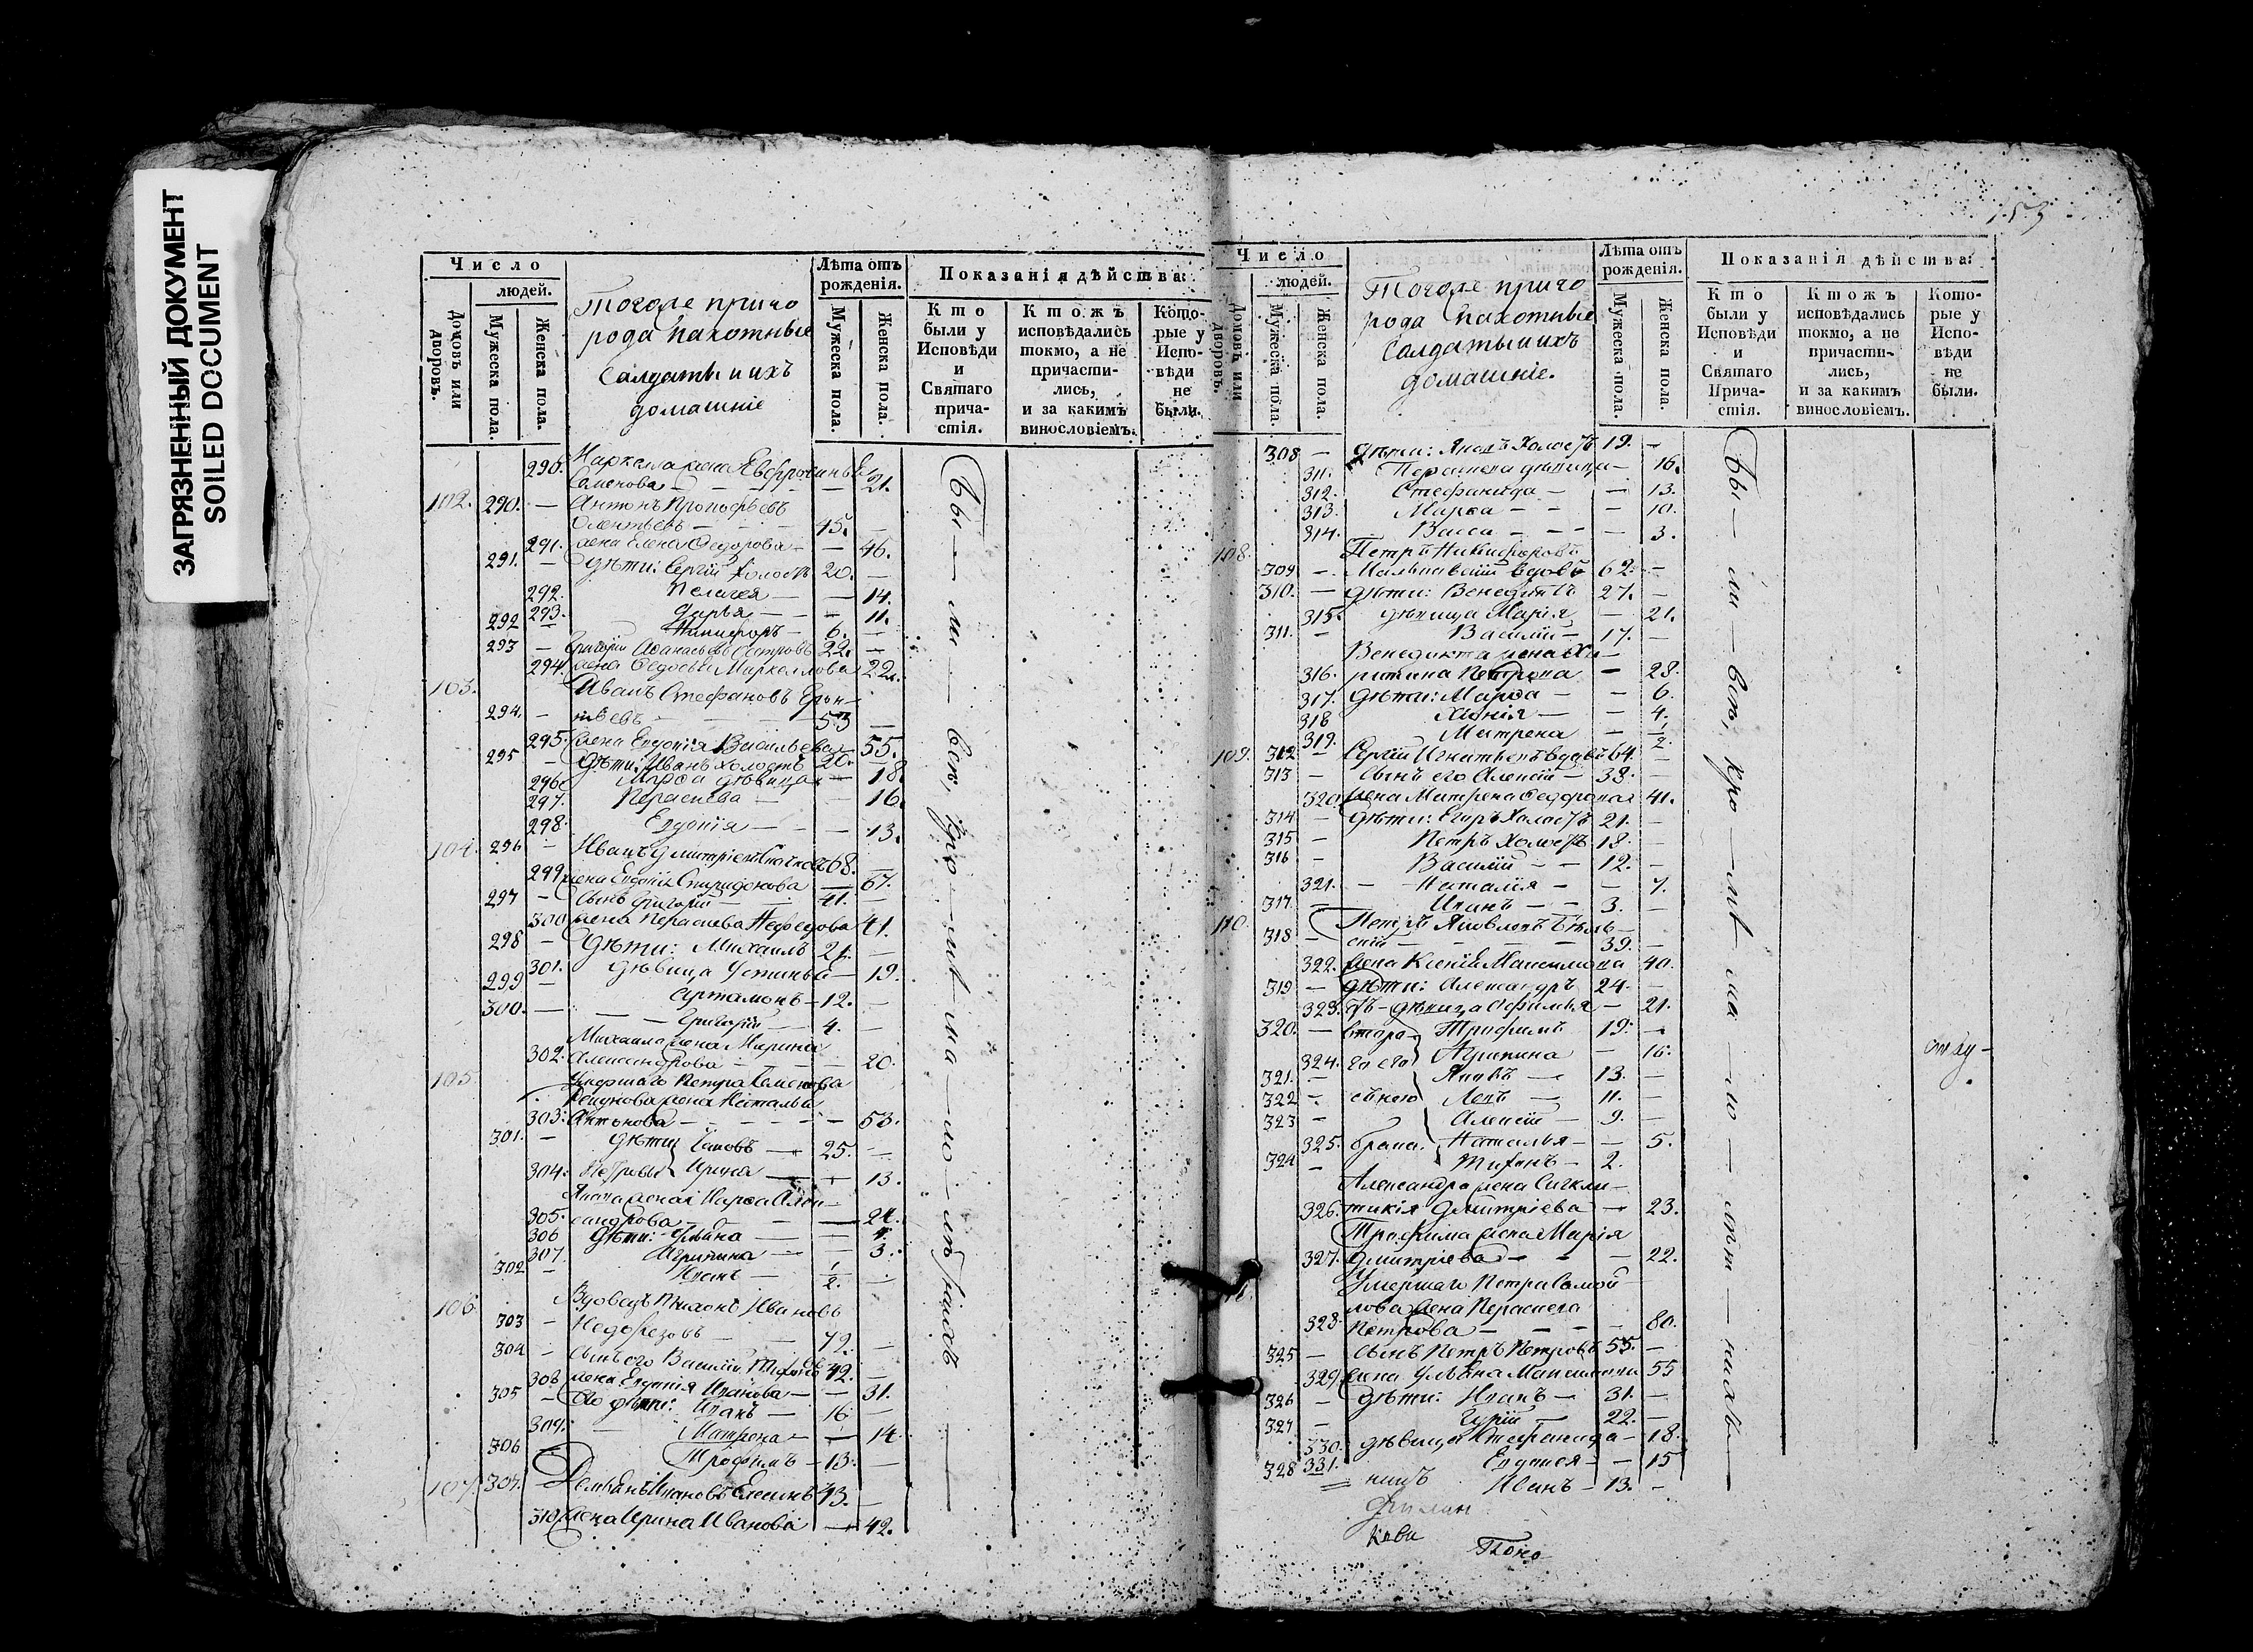 ЗАГРЯЗНЕННЫЙ ДОКУМЕНТ
SOILED DOCUMENT
Число
людей.
Домовъ или дворовъ.
Мужеска пола.
Женска пола.
Тогоже приго
рода пахотные
Салдаты и ихъ
домашніе
Лѣта отъ рожденія.
Мужеска пола.
Женска пола.
Показанія дѣйства:
Кто были у Исповѣди и Святаго причастія.
Ктожъ исповѣдались токмо, а не причастились, и за какимъ винословіемъ.
Которые у Исповѣди не были.
290. Маркелла жена Евфросинья
Семенова — 21.
102. 290. — Антонъ Прокофьевъ
45. —
291. жена Елена Федорова — 46.
291. — дѣти: Сергій холостъ 20. —
292. Пелагея — 14.
293. Дарья — 11.
292 — Никифоръ — 6. —
293 — Григорій Афанасьевъ 22. —
294. жена Федосья Маркеллова 22.
103. Иванъ Стефановъ
294. — 53 —
295. жена Евдокія Васильева — 55.
295 — дѣти: Иванъ холостъ 20. —
296 Марфа дѣвица — 18.
297. Параскева — 16.
298. Евдокія — 13.
104. 296 — Иванъ Дмитріевъ 68. —
299 жена Евдокія Спиридонова — 67.
297 — сынъ Григорій — 41. —
300 жена Параскева Нефедова 41.
298 — дѣти: Михаилъ 21. —
301. дѣвица Устинья — 19.
299 — Артамонъ — 12. —
300. — Григорій — 4. —
Михаила жена Марина
302. Александрова — 20.
105. Умершаго Петра Семенова
жена Наталья
303. Антонова — 53.
301. — дѣти Яковъ — 25. —
304. Петровы Ирина — 13.
Якова жена Марфа Алек-
305. сандрова — 24.
306 дѣти: Ульяна — 4.
307. Агрипина — 3.
302 — Иванъ — 1/2. —
106. Вдовецъ Тихонъ Ивановъ
303 — Недорезовъ — 72. —
304 — сынъ его Василій Тихоновъ 42. —
308 жена Евдокія Иванова — 31.
305 — его дѣти: Иванъ — 16 —
309. Матрена — 14
306 — Трофимъ — 13. —
107. 307. Демьянъ Ивановъ 43. —
310 жена Ирина Иванова — 42.
Бы — ли — всѣ, кро — мѣ — ма — ло — лѣтныхъ
153
Число
людей.
Домовъ или дворовъ.
Мужеска пола.
Женска пола.
Тогоже приго
рода пахотные
Салдаты и ихъ
домашніе.
Лѣта отъ рожденія.
Мужеска пола.
Женска пола.
Показанія дѣйства:
Кто были у Исповѣди и Святаго Причастія.
Ктожъ исповѣдались токмо, а не причастились, и за какимъ винословіемъ.
Которые у Исповѣди не были.
308 — дѣти: холостъ 19. —
311. Параскева дѣвица — 16.
312. Стефанида — 13.
313. Марфа — 10.
314. Васса — 3.
108. Петръ Никифоровъ
309 — вдовъ 62. —
310. — дѣти: Венедиктъ 27. —
315. дѣвица Марія — 21.
311. — Василій — 17. —
Венедикта жена Ха-
316. ритина Петрова — 28.
317. дѣти: Марфа — 6.
318 Ксенія — 4.
319. Матрена — 1/2.
109. 312 — Сергій Игнатьевъ вдовъ 64. —
313 — сынъ его Алексій — 38. —
320. жена Матрена Федорова 41.
314 — дѣти: Егоръ холостъ 21. —
315 — Петръ холостъ 18. —
316 — Василій — 12. —
321. — Наталія — 7.
317. — Иванъ — 3. —
110. Петръ Яковлевъ Бѣль-
318 — скій — 39. —
322. жена Ксенія Максимова 40.
319 — дѣти: Александръ 24. —
323. дѣвица Афимья — 21.
320. — второ- Трофимъ 19. —
324. го его Агрипина — 16.
321. — Яковъ — 13. —
322 — Левъ — 11. —
323 — Алексій — 9. —
325. брака. Наталья — 5.
324 — Тихонъ — 2.
Александра жена Синкли-
326. тикія Дмитріева — 23.
Трофима жена Марія
327. Дмитріева — 22.
Умершаго Петра Самой-
лова жена Параскева
328. Петрова — 80.
325 — сынъ Петръ Петровъ 55. —
329. жена Ульяна 55
326 — дѣти: Иванъ — 31. —
327 — Гурій — 22. —
330. дѣвица Стефанида — 18.
331. Евдокея — 15
328 Иванъ — 13. —
Бы — ли — всѣ, кро — мѣ — ма — ло — лѣт — ныхъ
отлу-